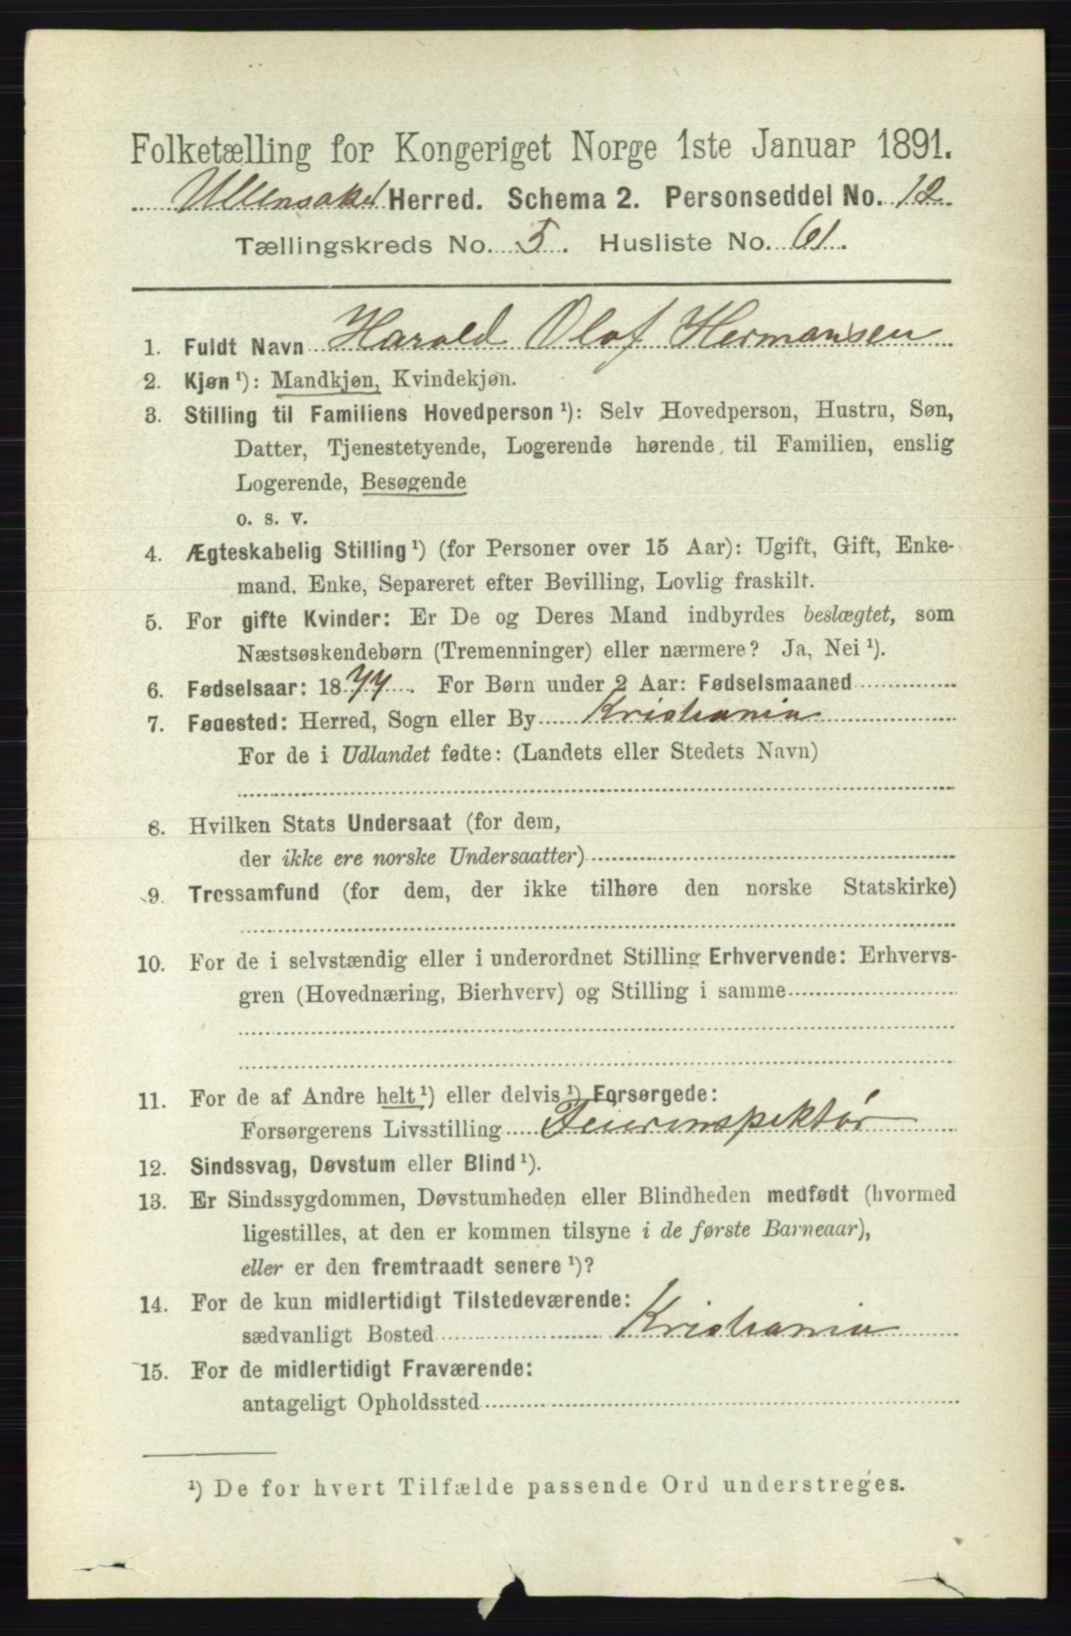 Folketælling for Kongeriget Norge 1ste Januar 1891.
Ullensaker Herred. Schema 2. Personseddel No. 12
Tællingskreds No. 5. Husliste No. 61.
1. Fuldt Navn Harald Olaf Hermansen
2. Kjøn ¹): Mandkjøn, Kvindekjøn.
3. Stilling til Familiens Hovedperson ¹): Selv Hovedperson, Hustru, Søn,
Datter, Tjenestetyende, Logerende hørende til Familien, enslig
Logerende, Besøgende
o. s. v.
4. Ægteskabelig Stilling ¹) (for Personer over 15 Aar): Ugift, Gift, Enke-
mand, Enke, Separeret efter Bevilling, Lovlig fraskilt.
5. For gifte Kvinder: Er De og Deres Mand indbyrdes beslægtet, som
Næstsøskendebørn (Tremenninger) eller nærmere? Ja, Nei ¹).
6. Fødselsaar: 1877. For Børn under 2 Aar: Fødselsmaaned
7. Fødested: Herred, Sogn eller By Kristiania
For de i Udlandet fødte: (Landets eller Stedets Navn)
8. Hvilken Stats Undersaat (for dem,
der ikke ere norske Undersaatter)
9. Trossamfund (for dem, der ikke tilhøre den norske Statskirke)
10. For de i selvstændig eller i underordnet Stilling Erhvervende: Erhvervs-
gren (Hovednæring, Bierhverv) og Stilling i samme
11. For de af Andre helt ¹) eller delvis ¹) Forsørgede:
Forsørgerens Livsstilling Feierinspektør
12. Sindssvag, Døvstum eller Blind ¹).
13. Er Sindssygdommen, Døvstumheden eller Blindheden medfødt (hvormed
ligestilles, at den er kommen tilsyne i de første Barneaar),
eller er den fremtraadt senere ¹)?
14. For de kun midlertidigt Tilstedeværende:
sædvanligt Bosted Kristiania
15. For de midlertidigt Fraværende:
antageligt Opholdssted
¹) De for hvert Tilfælde passende Ord understreges.